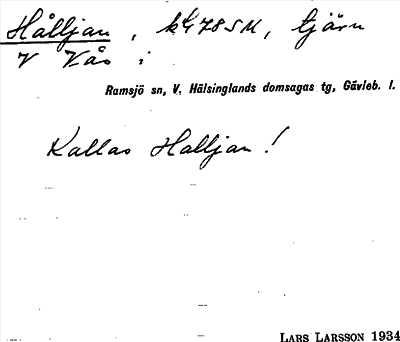 Hålljan, k478SM, tjärn
V Vås i
Ramsjö sn, V. Hälsinglands domsagas tg, Gävleb. l.
Kallas Halljan!
LARS LARSSON 1934